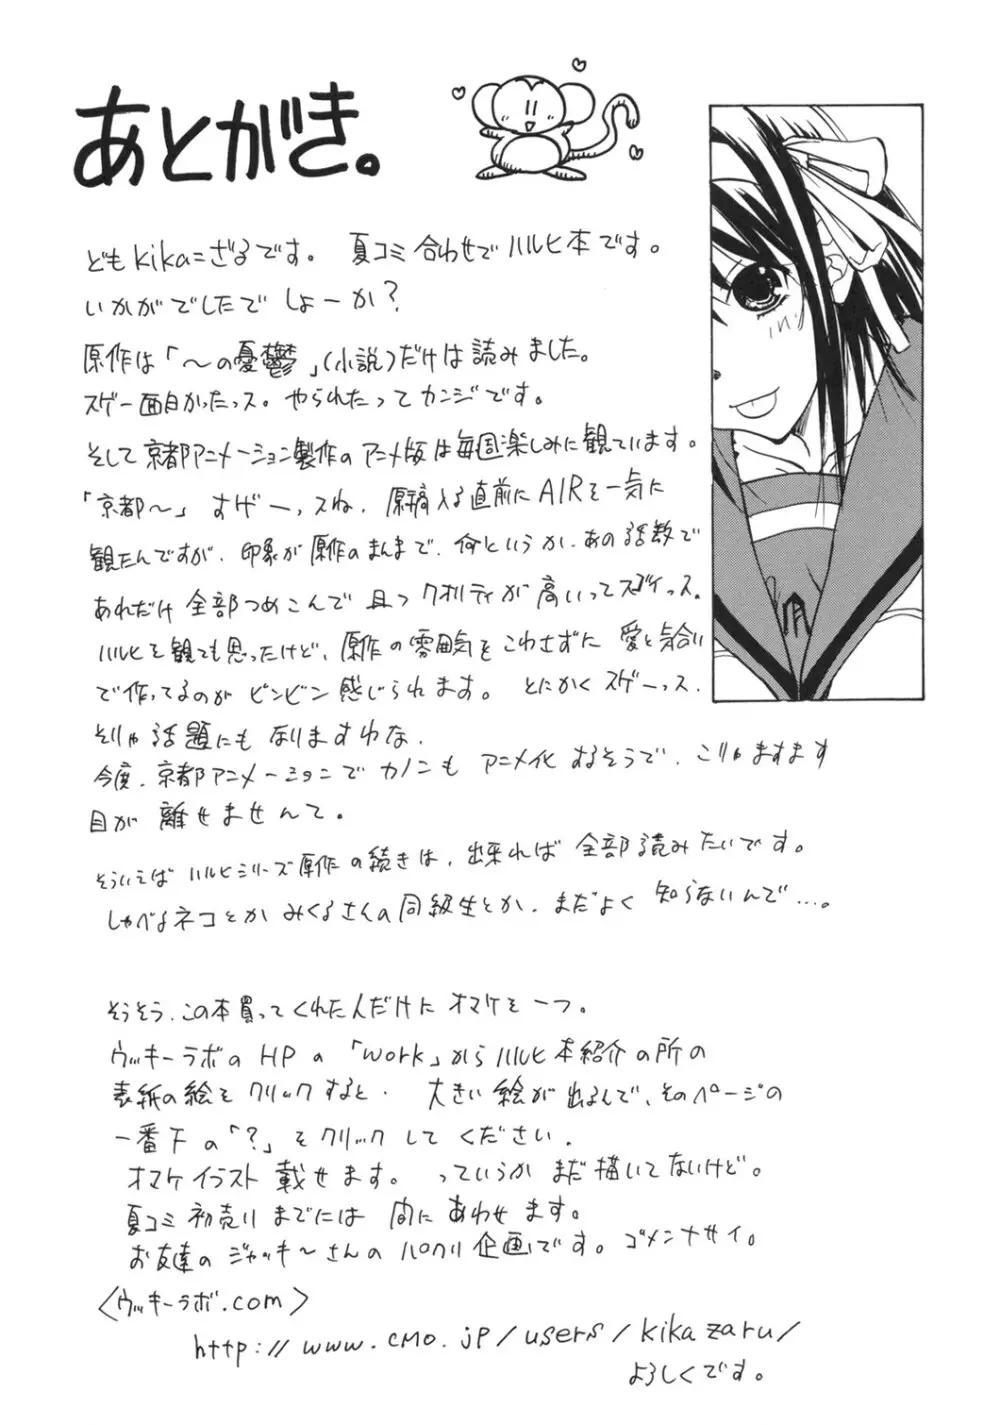 あとがき。
どもkika=ざるです。 夏コミ合わせでハルヒ本です。
いかがでしたでしょーか?
原作は「〜の憂鬱」(小説)だけは読みました。
スゲー面白かったっス。やられたってカンジです。
そして京都アニメーション製作のアニメ版は毎週楽しみに観ています。
「京都〜」すげーっスね、原稿入る直前にAIRを一気に
観たんですが、印象が原作のまんまで、何というか、あの話数で
あれだけ全部つめこんで且つクオリティが高いってスゴイっス。
ハルヒを観ても思ったけど、原作の雰囲気をこわさずに愛と気合い
で作ってるのがビンビン感じられます。とにかくスゲーっス、
そりゃ話題にもなりますわな、
今度、京都アニメーションでカノンもアニメ化するそうで、こりゃますます
目が離せませんて。
そういえばハルヒシリーズ原作の続きは、出来れば全部読みたいです。
しゃべるネコとかみくるさんの同級生とか、まだよく知らないんで…。
そうそう、この本買ってくれた人だけにオマケを一つ。
ウッキーラボのHPの「work」からハルヒ本紹介の所の
表紙の絵をクリックすると、大きい絵が出るんで、そのページの
一番下の「?」をクリックしてください。
オマケイラスト載せます。っていうかまだ描いてないけど。
夏コミ初売りまでには間にあわせます。
お友達のジャッキ〜さんのパクリ企画です。ゴメンナサイ。
〈ウッキーラボ.com〉
http://www.cmo.jp/users/kikazaru/
よろしくです。